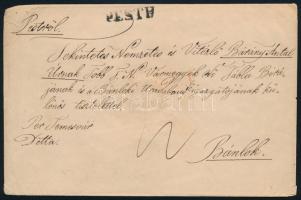 PESTH
Pestről.
Tekintetes Nemzetes és Vitézlő Bárány Antal
Úrnak Több T. N. Vármegyék Tábla Bírá-
jának és a Bánlaki Uradalom igazgatójának kü-
lönös tisztelettel
Per Temesvár
Detta.
Bánlok.